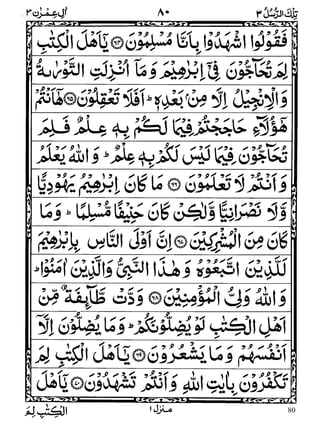 تِلْكَ الرُّسُلُ ٣ ٨٠ اٰلِ عِمْرٰن ٣
فَقُوْلُوا اشْهَدُوْا بِاَنَّا مُسْلِمُوْنَ ﴿۶۴﴾ يٰۤاَهْلَ الْكِتٰبِ
لِمَ تُحَآجُّوْنَ فِيْۤ اِبْرٰهِيْمَ وَمَاۤ اُنْزِلَتِ التَّوْرٰىةُ
وَالْاِنْجِيْلُ اِلَّا مِنْۢ بَعْدِهٖ ؕ اَفَلَا تَعْقِلُوْنَ ﴿۶۵﴾ هٰۤاَنْتُمْ
هٰۤؤُلَآءِ حَاجَجْتُمْ فِيْمَا لَكُمْ بِهٖ عِلْمٌ فَلِمَ
تُحَآجُّوْنَ فِيْمَا لَيْسَ لَكُمْ بِهٖ عِلْمٌ ؕ وَاللّٰهُ يَعْلَمُ
وَاَنْتُمْ لَا تَعْلَمُوْنَ ﴿۶۶﴾ مَا كَانَ اِبْرٰهِيْمُ يَهُوْدِيًّا
وَّلَا نَصْرَانِيًّا وَّلٰكِنْ كَانَ حَنِيْفًا مُّسْلِمًا ؕ وَمَا
كَانَ مِنَ الْمُشْرِكِيْنَ ﴿۶۷﴾ اِنَّ اَوْلَى النَّاسِ بِاِبْرٰهِيْمَ
لَلَّذِيْنَ اتَّبَعُوْهُ وَهٰذَا النَّبِيُّ وَالَّذِيْنَ اٰمَنُوْا ؕ
وَاللّٰهُ وَلِيُّ الْمُؤْمِنِيْنَ ﴿۶۸﴾ وَدَّتْ طَّآئِفَةٌ مِّنْ
اَهْلِ الْكِتٰبِ لَوْ يُضِلُّوْنَكُمْ ؕ وَمَا يُضِلُّوْنَ اِلَّاۤ
اَنْفُسَهُمْ وَمَا يَشْعُرُوْنَ ﴿۶۹﴾ يٰۤاَهْلَ الْكِتٰبِ لِمَ
تَكْفُرُوْنَ بِاٰيٰتِ اللّٰهِ وَاَنْتُمْ تَشْهَدُوْنَ ﴿۷۰﴾ يٰۤاَهْلَ
80 منزل ١ الْكِتٰبِ لِمَ